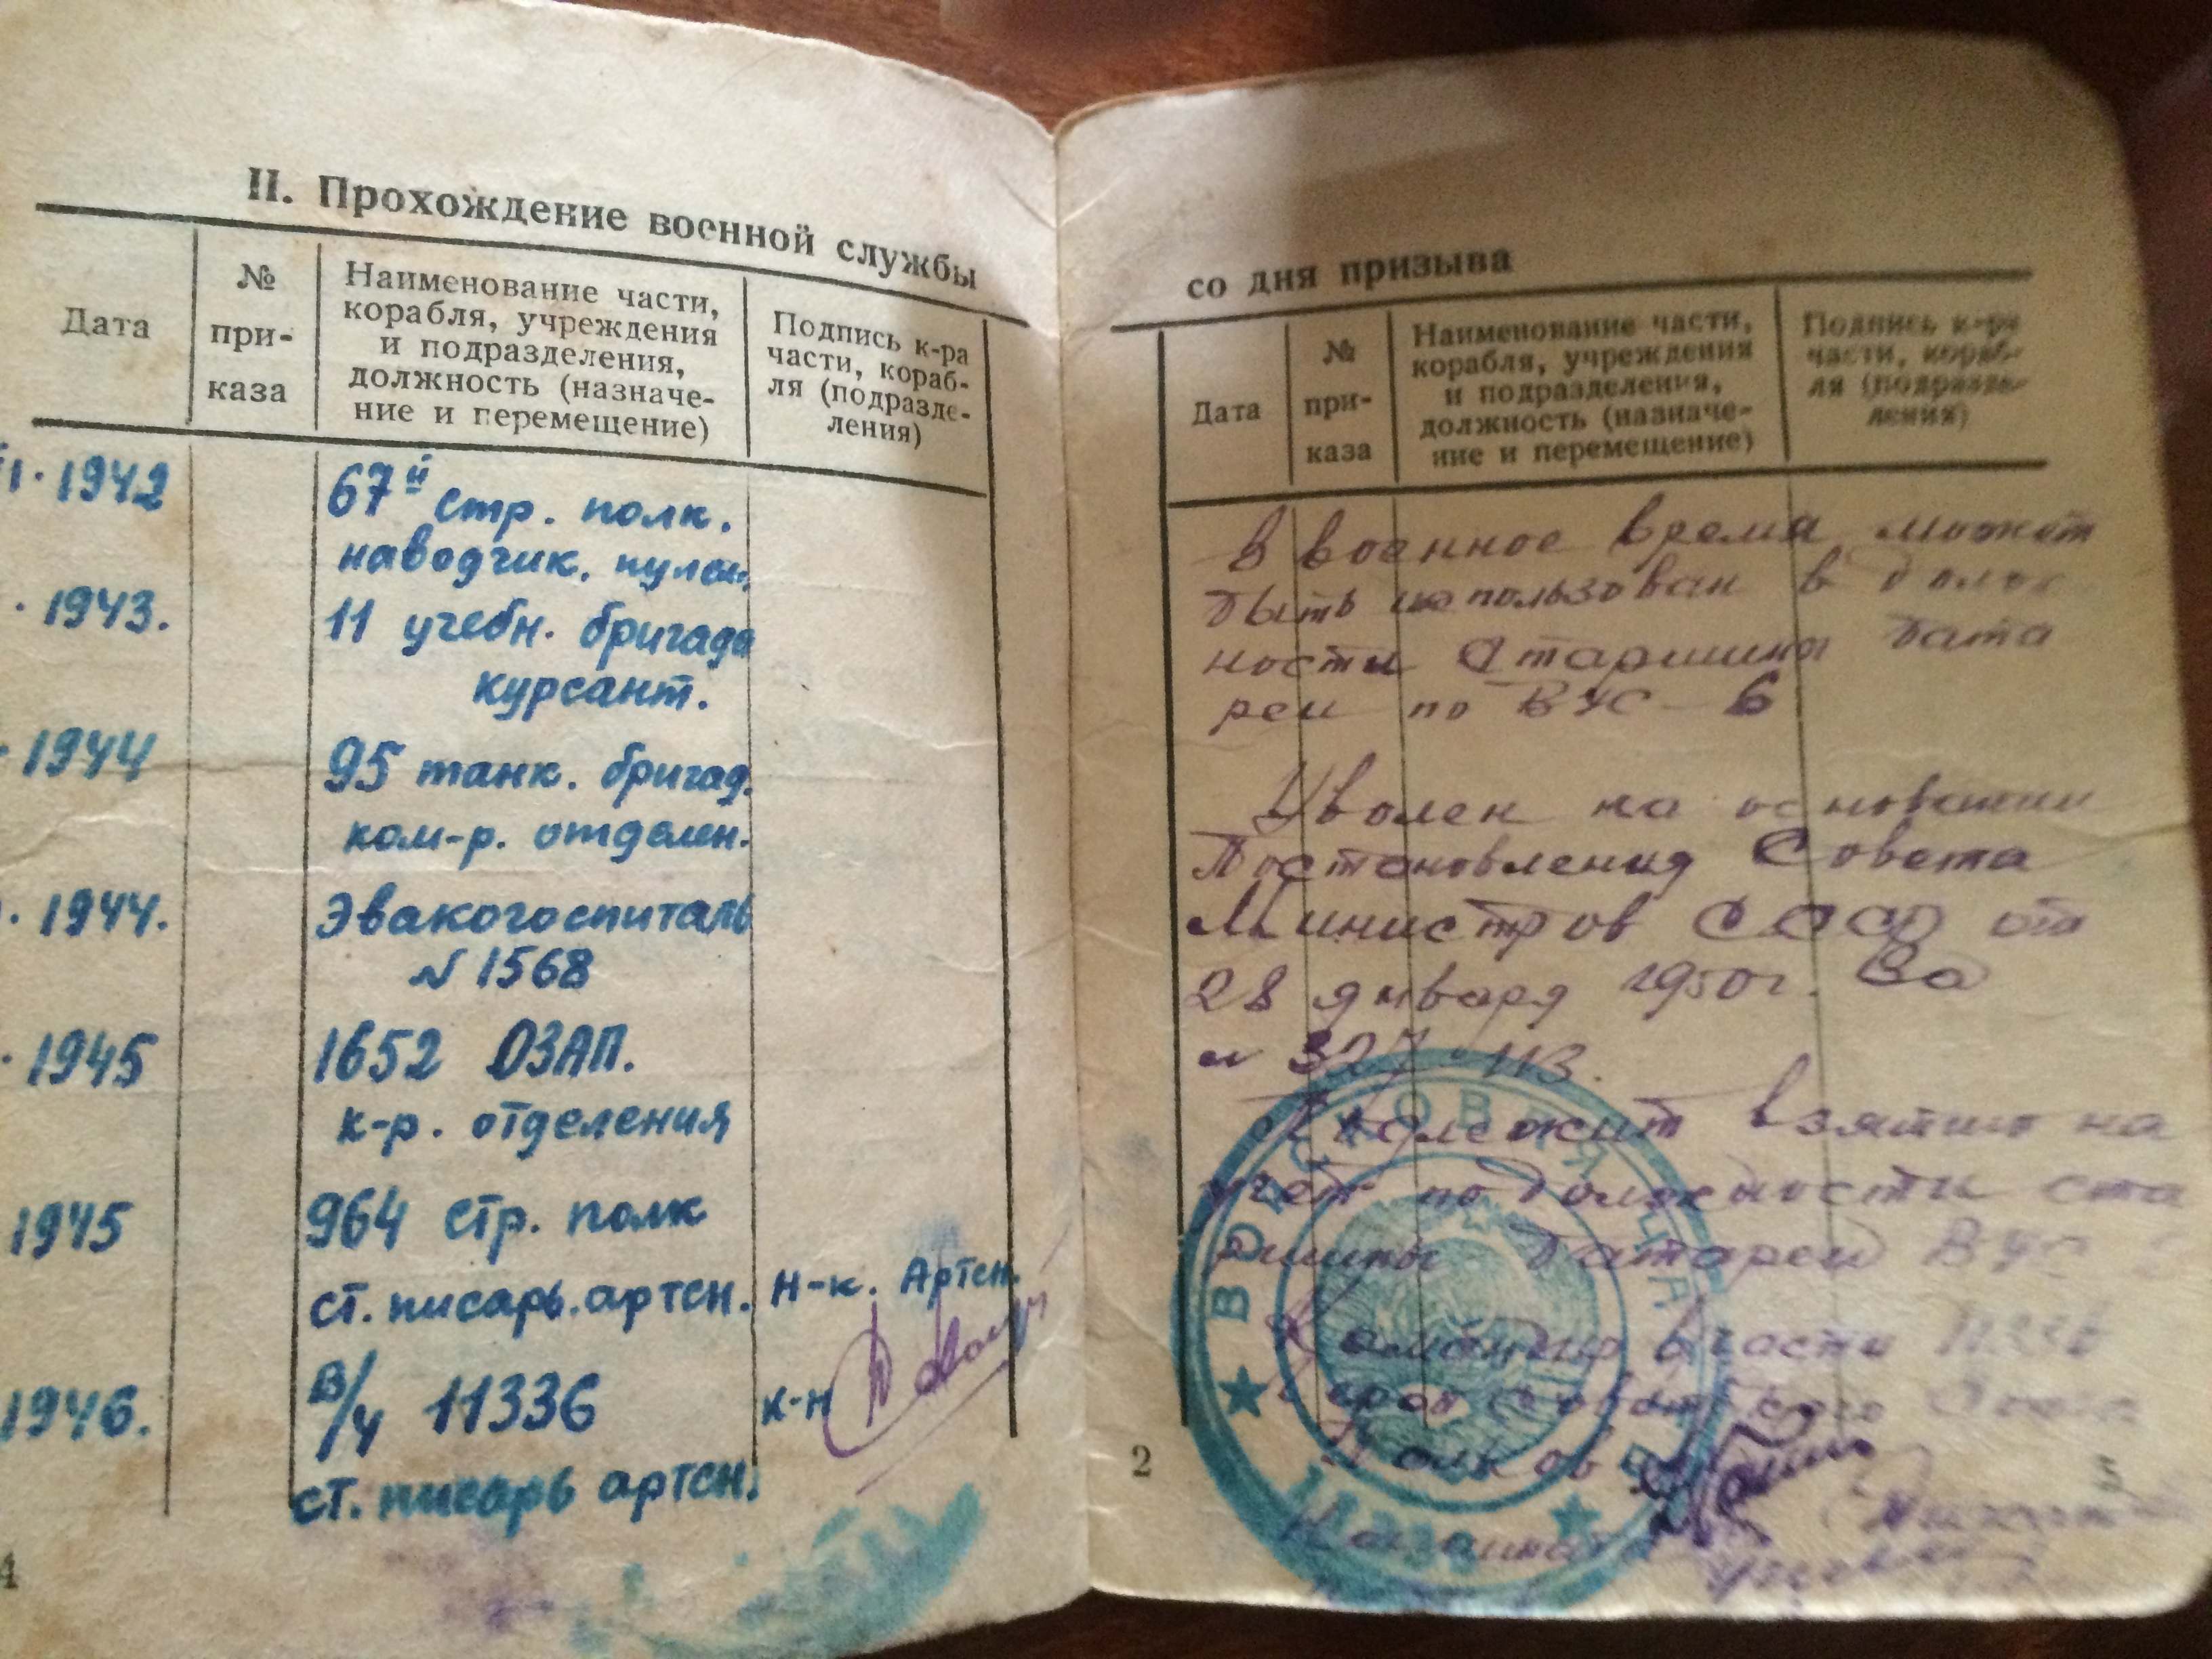 II. Прохождение военной службы
Дата
№
при-
каза
Наименование части,
корабля, учреждения
и подразделения,
должность (назначе-
ние и перемещение)
Подпись к-ра
части, кораб-
ля (подразде-
ления)
1942
67й стр. полк.
наводчик. пулем.
1943.
11 учебн. бригада
курсант.
1944
95 танк. бригад.
ком-р. отделен.
1944.
Эвакогоспиталь
№ 1568
1945
1652 ОЗАП.
к-р. отделения
1945
964 стр. полк
ст. писарь. артсн.
Н-к. Артсн.
1946.
В/ч 11336
к-н
ст. писарь артсн.
4
со дня призыва
Дата
№
при-
каза
Наименование части,
корабля, учреждения
и подразделения,
должность (назначе-
ние и перемещение)
Подпись к-ра
части, кораб-
ля (подразде-
ления)
В военное время может
быть использован в долж
ности Старшина бата
реи по ВУС - 6
Уволен на основании
Постановления Совета
Министров СССР от
28 января 1950 г. За
№ 327-113.
Подлежит взятию на
учет по должности ста
ршины батареи ВУС
Командир в/части 11336
Герой Советского Союза
Полков
ВОЙСКОВАЯ ЧАСТЬ
2
5